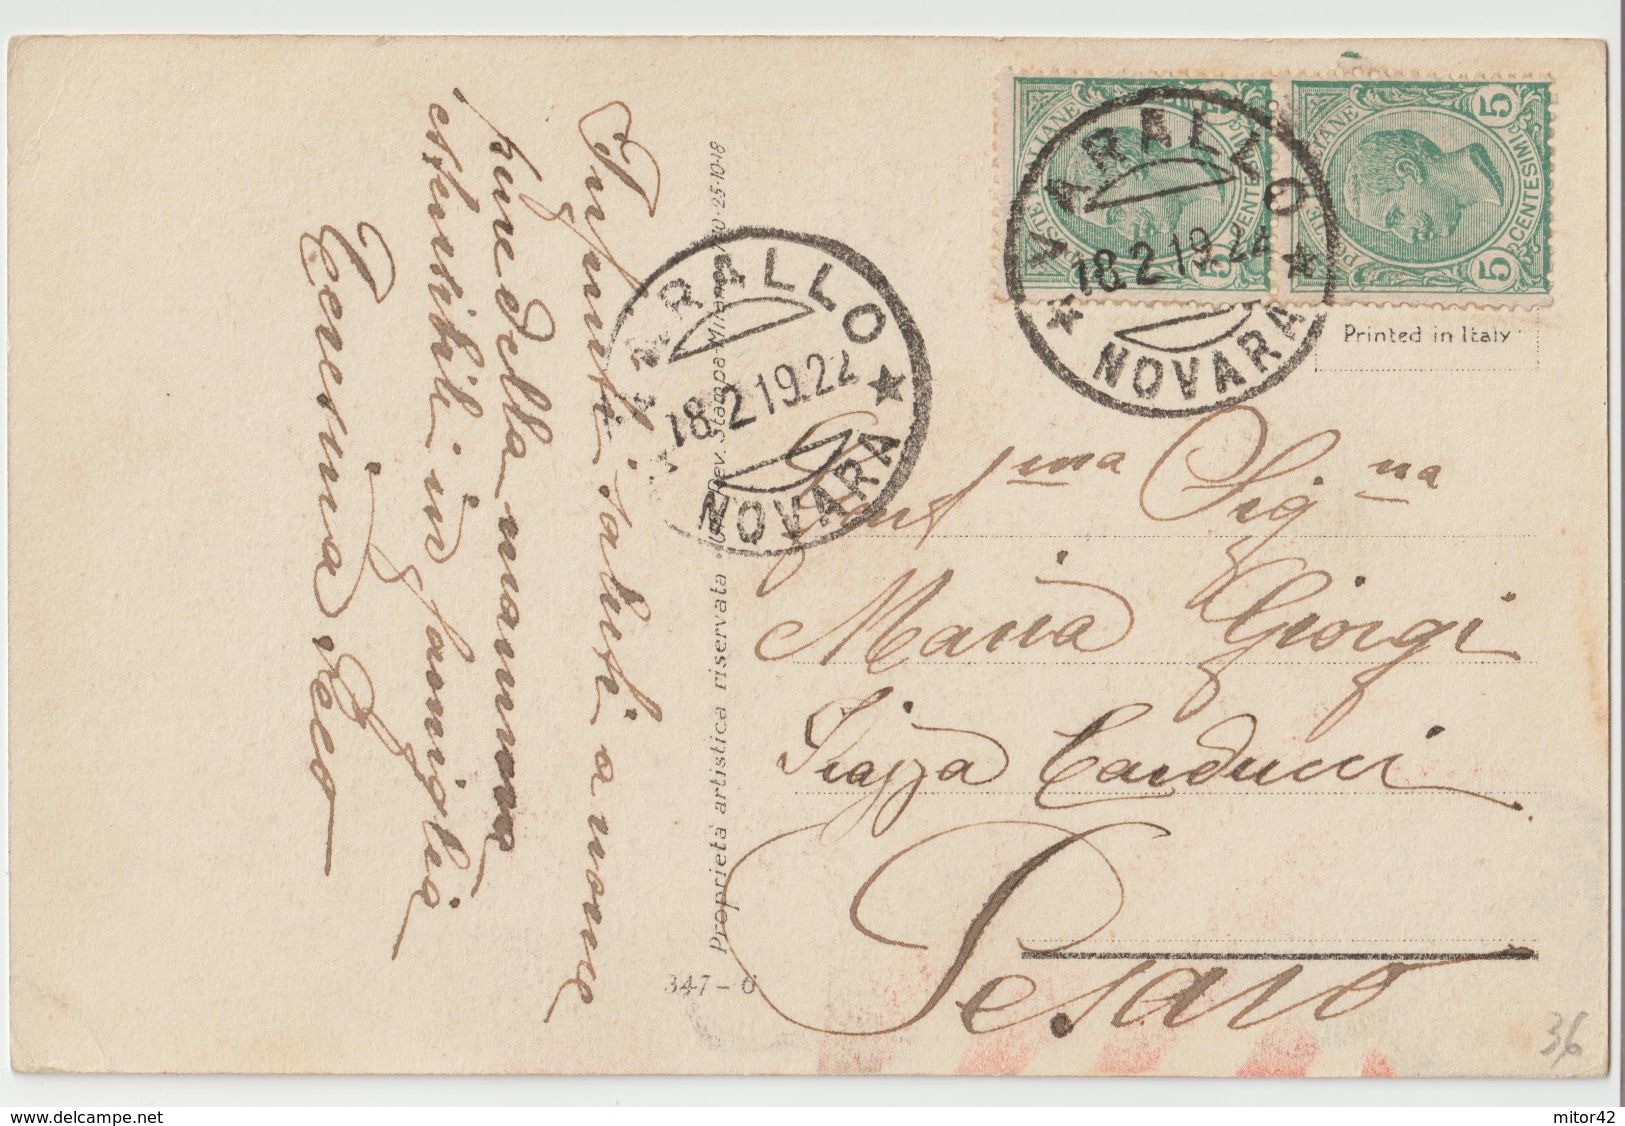 Infiniti saluti a nome
pure della mamma
estensibili in famiglia
Teresina Seco
Proprietà artistica riservata
Rev. Stampa Milano
25-10-18
347 - 6
VARALLO
18.2 19.22
NOVARA
VARALLO
18.2 19.22
NOVARA
POSTE ITALIANE
CENTESIMI
5
5
POSTE ITALIANE
CENTESIMI
5
5
Printed in Italy
Gent.ma Sig.na
Maria Giorgi
Piazza Carducci
Pesaro
36
delcampe.net
mitor42